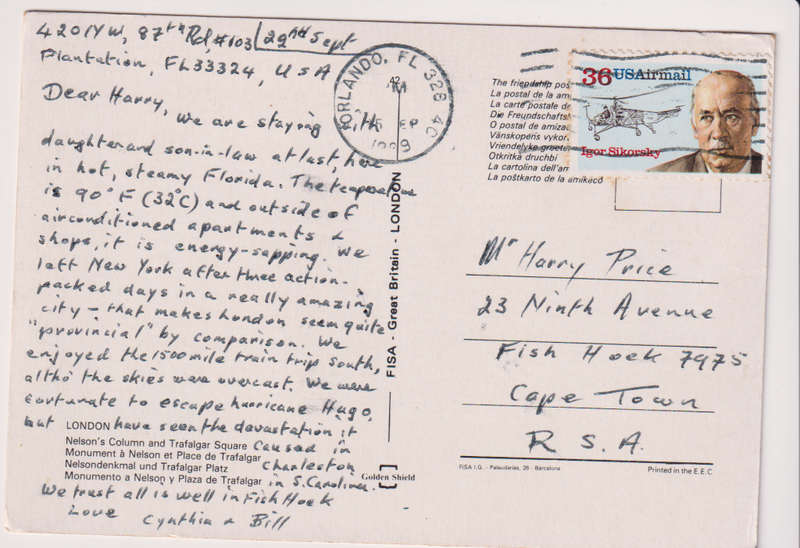 4201 NW, 87th Rd, #103 29nd Sept
Plantation, FL 33324, USA
Dear Harry,
We are staying with
daughter and son-in-law at last, here
in hot, steamy Florida. The temperature
is 90°F (32°C) and outside of
airconditioned apartments &
shops, it is energy-sapping. We
left New York after three action-
packed days in a really amazing
city – that makes London seem quite
"provincial" by comparison. We
enjoyed the 1500 mile train trip south,
altho the skies were overcast. We were
fortunate to escape hurricane Hugo,
but have seen the devastation it
caused in
Charleston
in S. Carolina.
We trust all is well in Fish Hoek
Love Cynthia & Bill
LONDON
Nelson's Column and Trafalgar Square
Monument à Nelson et Place de Trafalgar
Nelsondenkmal und Trafalgar Platz
Monumento a Nelson y Plaza de Trafalgar
Golden Shield
FISA - Great Britain - LONDON
ORLANDO, FL 328
1989
The friendship pos
La postal de la ami
La carte postale de
Die Freundschafts
O postal de amizad
Vänskapens vykor
Vriendelyke groete
Otkritka druchbi
La cartolina dell'am
La poŝtkarto de la amikeco
36 USAirmail
Igor Sikorsky
Mr Harry Price
23 Ninth Avenue
Fish Hoek 7975
Cape Town
R. S. A.
FISA I.G. - Palaudarias, 26 - Barcelona
Printed in the E.E.C.